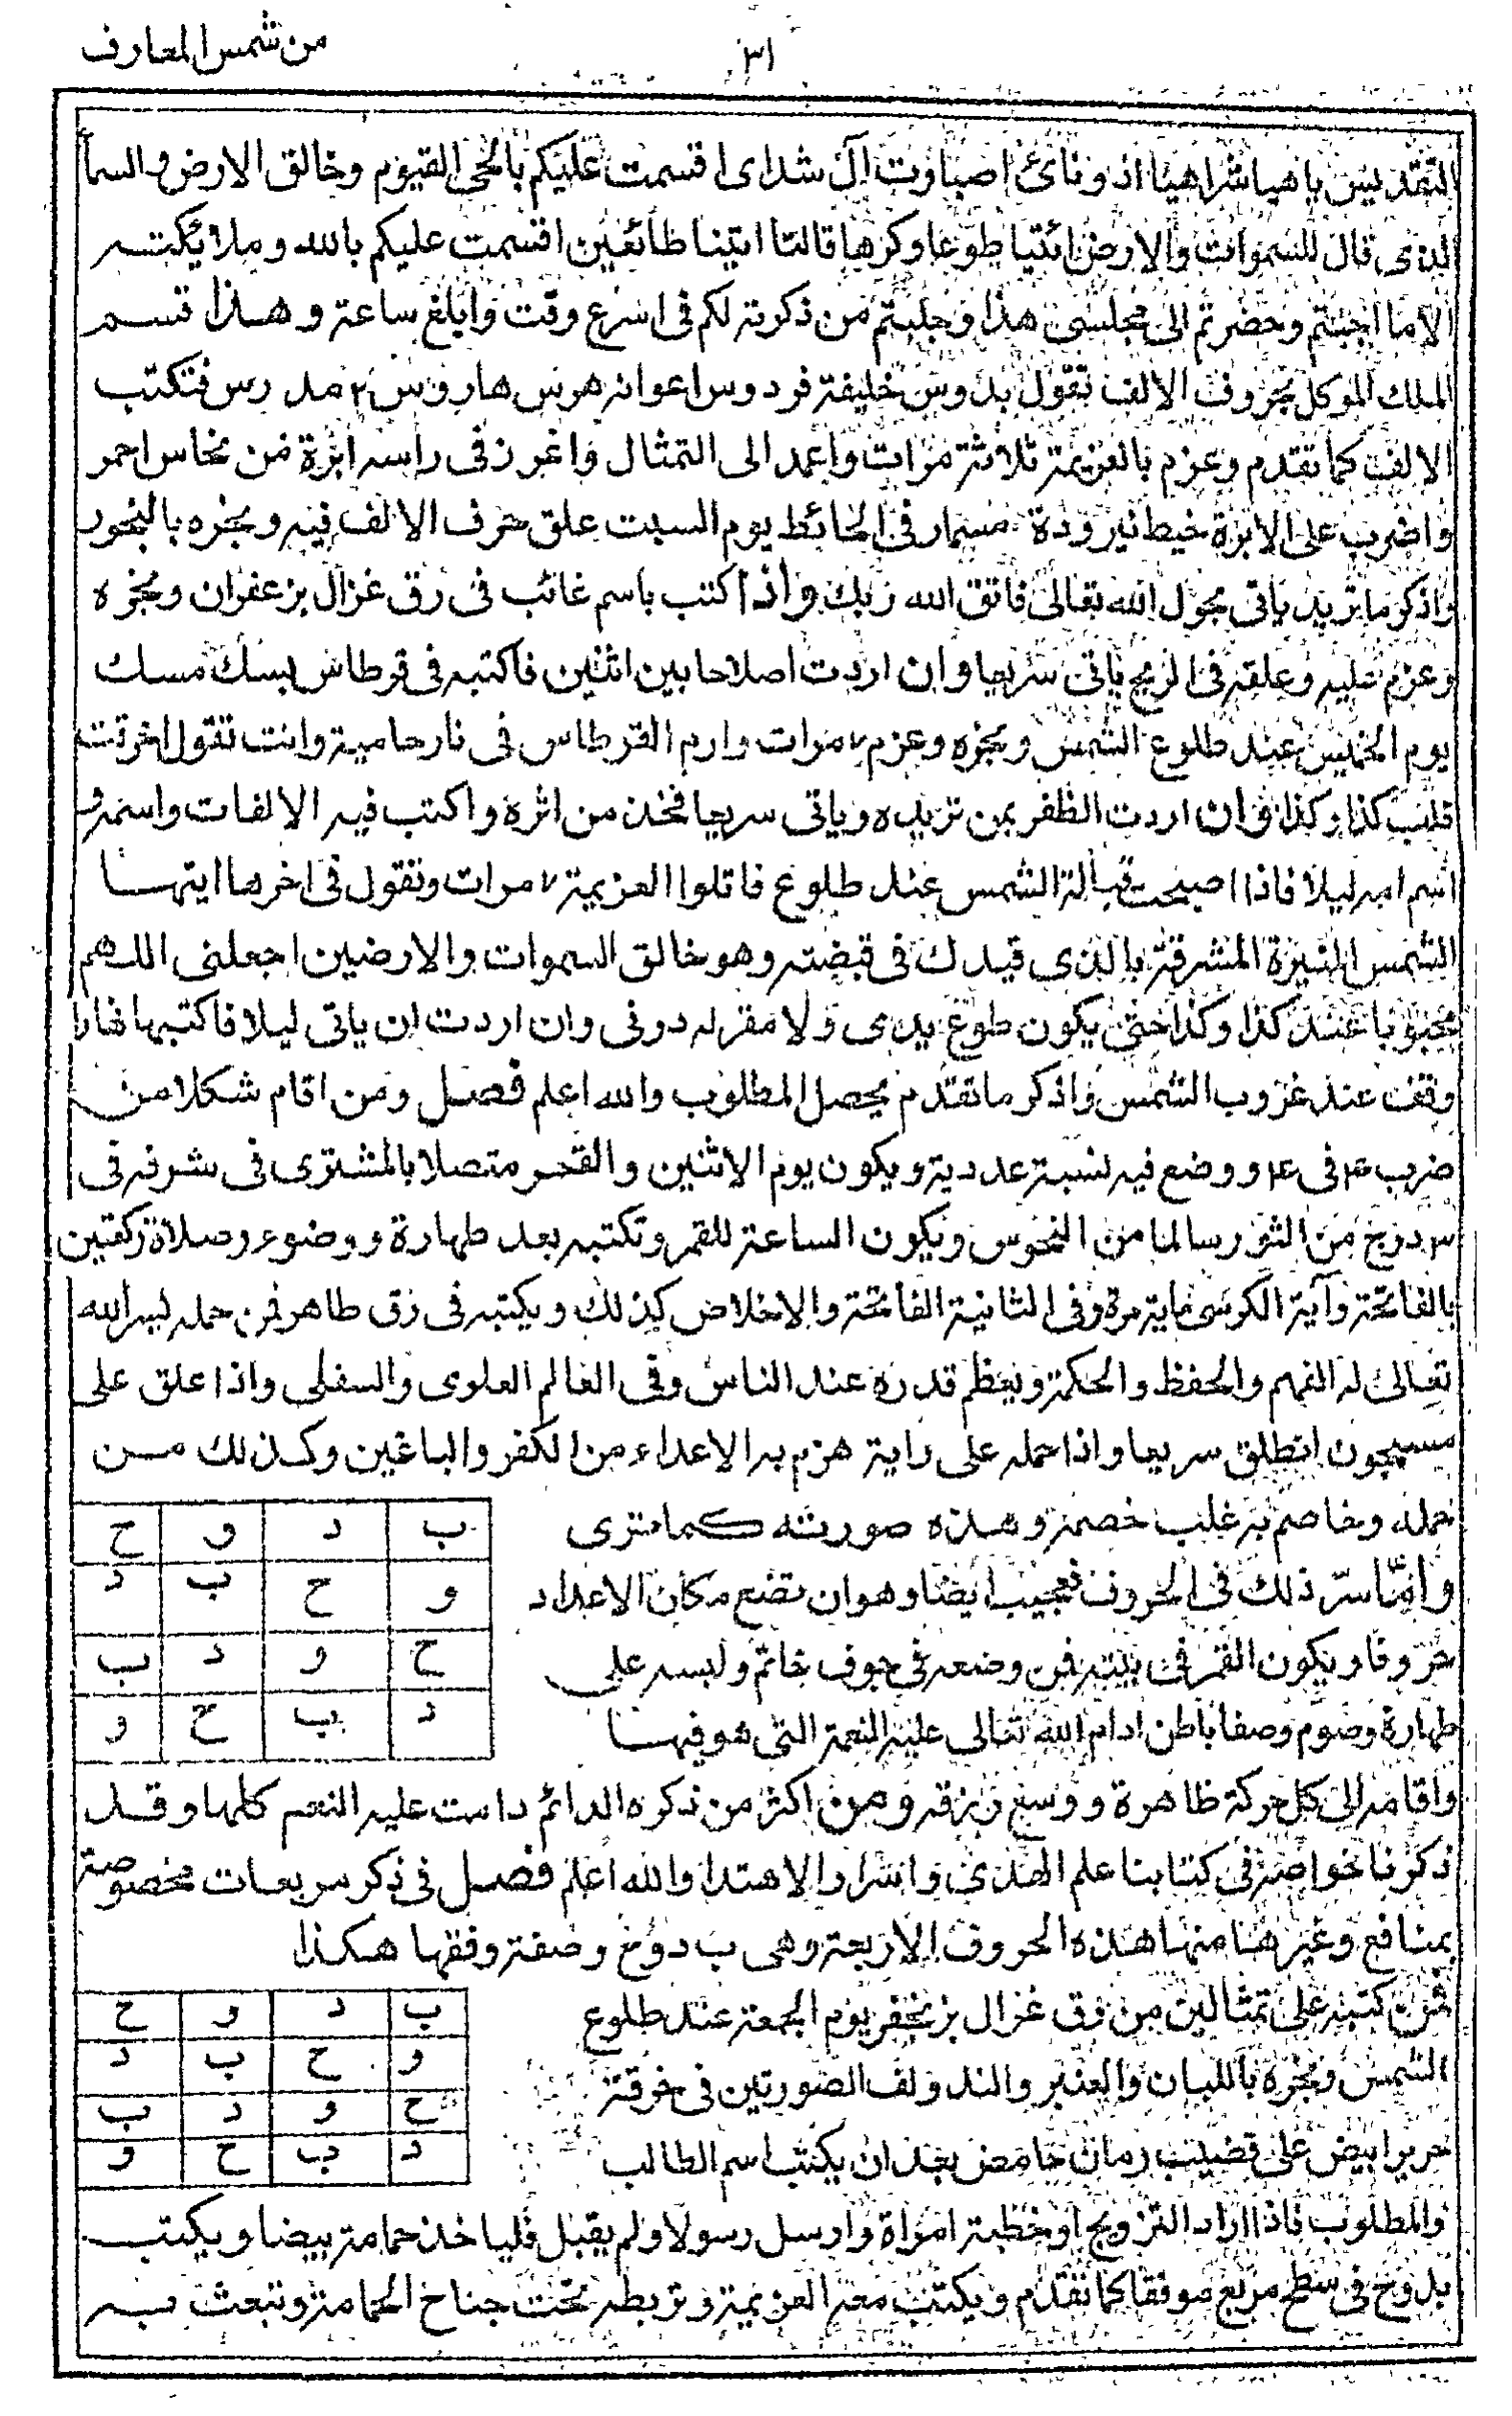 ٣١
من شمس المعارف
التقديس ياهيا شراهيا اذوناى اصباوت آل شداى اقسمت عليكم بالحى القيوم وخالق الارض والسما
الذى قال للسموات والارض ائتيا طوعا وكرها قالتا اتينا طائعين اقسمت عليكم بالله وملائكته
الاما اجبتم وحضرتم الى مجلسى هذا وجلبتم من ذكرته لكم فى اسرع وقت وابلغ ساعة وهذا قسم
الملك الموكل بحروف الالف تقول بدوس خليفة فردوس اعوانه هرس هاروس ٢ مد رس فتكتب
الالف كما تقدم وعزم بالعزيمة ثلاثة مرات واعمد الى التمثال واغرز فى راسه ابرة من نحاس احمر
واضرب على الابرة خيط نيرودة مسمار فى الحائط يوم السبت علق حرف الالف فيه وبخره بالبخور
واذكر ما تريد ياتى بحول الله تعالى فاتق الله ربك واذا كتب باسم غائب فى رق غزال بزعفران وبخره
وعزم عليه وعلقه فى الريح ياتى سريعا وان اردت اصلاحا بين اثنين فاكتبه فى قرطاس بسك مسك
يوم الخميس عند طلوع الشمس وبخره وعزم ٧ مرات وارم القرطاس فى نار حامية وانت تقول احرقت
قلب كذا وكذا وان اردت الظفر بمن تريده وياتى سريعا فخذ من اثره واكتب فيه الالفات واسمه و
اسم امه ليلا فاذا اصبحت قبالة الشمس عند طلوع فاتلوا العزيمة ٧ مرات وتقول فى اخرها ايتها
الشمس المنيرة المشرقة بالذى قيدك فى قبضته وهو خالق السموات والارضين اجعلنى اللهم
محبوبا عند كذا وكذا حتى يكون طوع يدى ولا مقر له دونى وان اردت ان ياتى ليلا فاكتبها نهارا
وقف عند غروب الشمس واذكر ما تقدم يحصل المطلوب والله اعلم فصل ومن اقام شكلا من
ضرب ٤ فى ٤ ووضع فيه نسبة عددية ويكون يوم الاثنين والقمر متصلا بالمشترى فى شرفه فى
٣ درج من الثور سالما من النحوس ويكون الساعة للقمر وتكتبه بعد طهارة ووضوء وصلاة ركعتين
بالفاتحة وآية الكرسى ماية مرة وفى الثانية الفاتحة والاخلاص كذلك ويكتبه فى رق طاهر فمن حمله يسر الله
تعالى له الفهم والحفظ والحكمة ويعظم قدره عند الناس وفى العالم العلوى والسفلى واذا علق على
مسجون انطلق سريعا واذا حمله على راية هزم به الاعداء من الكفر والباغين وكذلك من
حمله وخاصم به غلب خصمه وهذه صورته كما ترى
ب د و ح
و ح ب د
ح و د ب
د ب ح و
واما سر ذلك فى الحروف فعجيب ايضا وهو ان تضع مكان الاعداد
حروفا ويكون القمر فى بيته فمن وضعه فى جوف خاتم ولبسه على
طهارة وصوم وصفا باطن ادام الله تعالى عليه النعمة التى هو فيها
واقامه الى كل حركة ظاهرة ووسع رزقه ومن اكثر من ذكره الدائم دامت عليه النعم كلها وقد
ذكرنا خواصه فى كتابنا علم الهدى واسرار الاهتدا والله اعلم فصل فى ذكر مربعات مخصوصة
بمنافع وغيرها منها هذه الحروف الاربعة وهى ب دوح وصفة وفقها هكذا
ب د و ح
و ح ب د
ح و د ب
د ب ح و
فمن كتبه على تمثالين من رق غزال بزنجفر يوم الجمعة عند طلوع
الشمس وبخره باللبان والعنبر والند ولف الصورتين فى خرقة
حرير ابيض على قضيب رمان حامض بعد ان يكتب اسم الطالب
والمطلوب فاذا اراد التزويج او خطبة امراة وارسل رسولا ولم يقبل فلياخذ حمامة بيضا ويكتب
بدوح فى سطح مربع موفقا كما تقدم ويكتب معه العزيمة وتربطه تحت جناح الحمامة وتبعث به